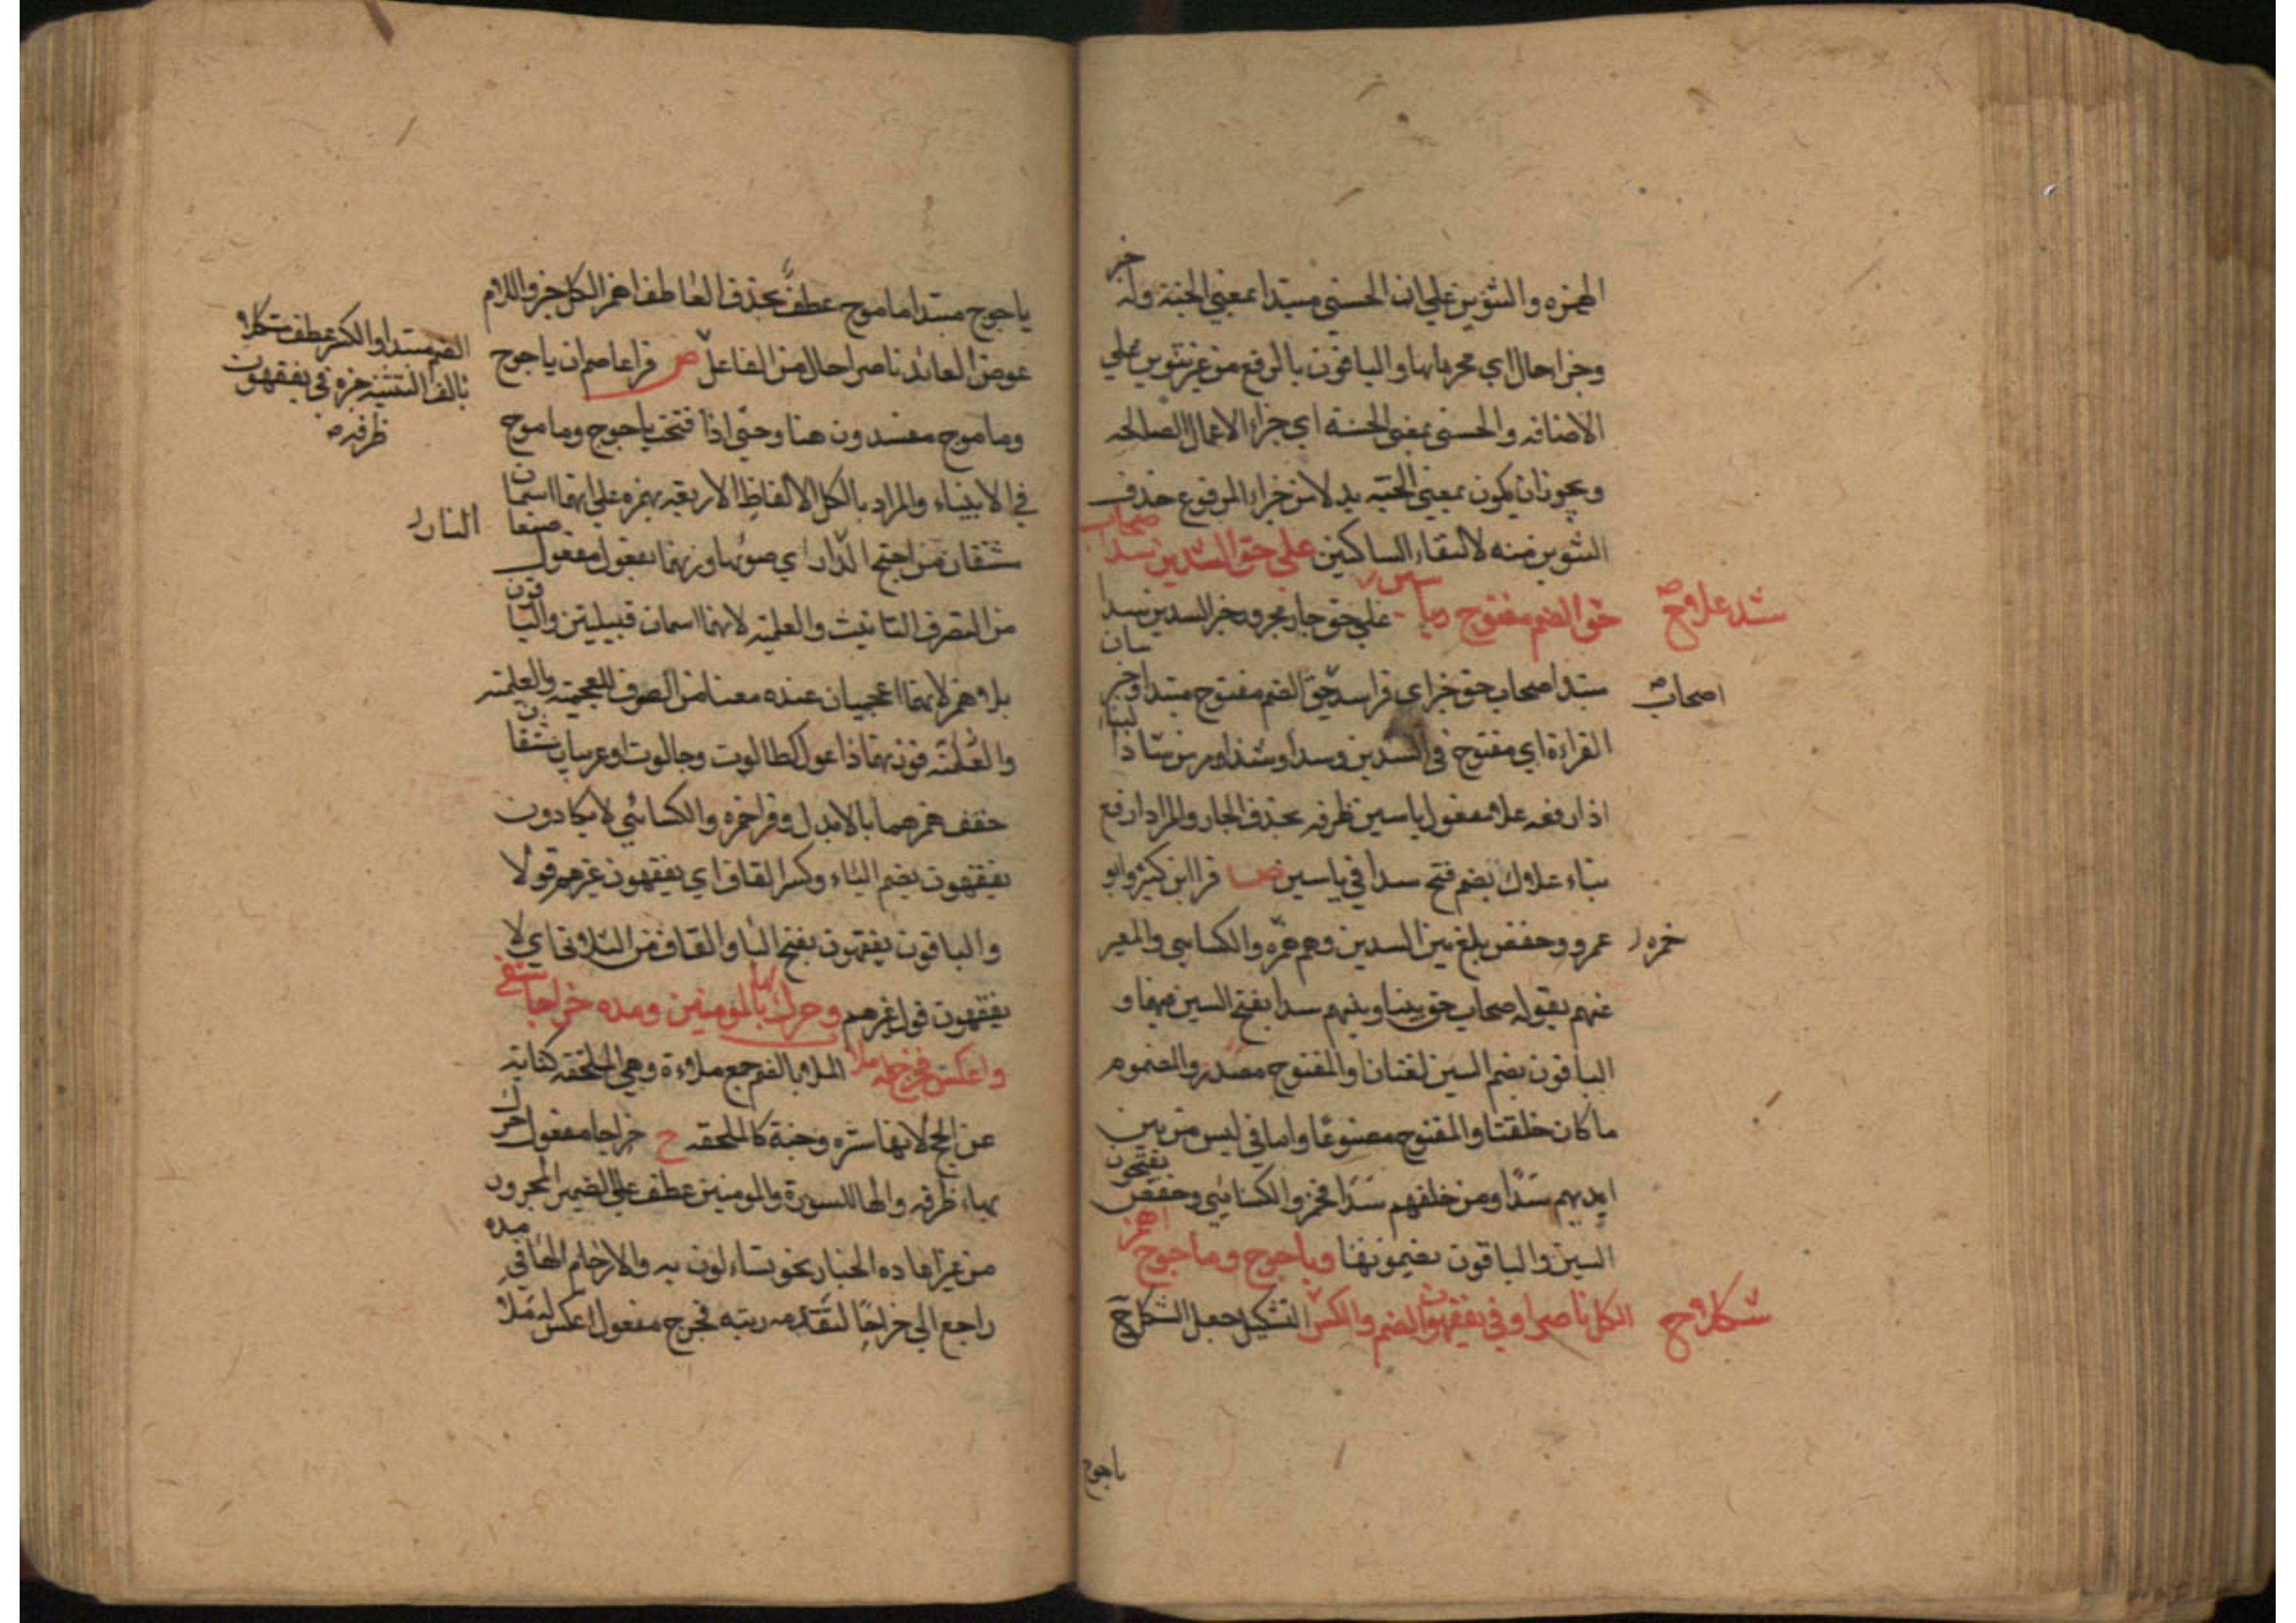 الهمزه والتنوين علي ان الحسني مبتدا بمعني الجنة وله خبر
وجزا حال اي مجزيا بها والباقون بالرفع من غير تنوين علي
الاضافه والحسني بمعني الحسنة اي جزاء الاعمال الصالحه
ويجوز ان يكون بمعني الجنة بدلا من جزاء المرفوع حذف
التنوين منه لالتقاء الساكنين علي حق السدين سدا صحاب
حق الضم مفتوح وياسين علي حق جار مجرور خبر السدين سدا
شد علا وح
مبتدا صحاب حق خبر اي قرا سد حق الضم مفتوح مبتدا وخبر
اصحاب
القراءة اي مفتوح في السدين وسدا
اذا رفعه علا مفعول ياسين ظرفه بحذف الجار والمراد ارفع
بناء علاك بضم فتح سدا في ياسين ص قرا ابن كثير وابو
عمرو وحفص بلغ بين السدين وهم حمزه والكسايي والمعبر
حمزه
عنهم بقوله صحاب حق بيننا وبينهم سدا بفتح السين فيهما و
الباقون بضم السين لغتان او المفتوح مصدر والمضموم
ما كان خلقتا والمفتوح مصنوعا واما في ليس من بين
ايديهم سدا ومن خلفهم سدا فحمز والكسايي وحفص يفتحون
السين والباقون يضمونها وياجوج وماجوج اهمز
الكل ناصرا وفي يفقهون الضم والكسر التشكيل جعل الشكل ح
شكلا وح
ياجوج
ياجوج مبتدا ماجوج عطف بحذف العاطف اهمز الكل خبر واللام
عوض العائد ناصرا حال من الفاعل ص قرا عاصم ان ياجوج
الضم مبتدا والكسر عطف شكلا
بالف التثنية خبره في يفقهون
ظرفه
وماجوج مفسدون هنا وحتي اذا فتحت ياجوج وماجوج
في الانبياء والمراد بالكل الالفاظ الاربعة بهمزه علي انهما اسمان
مشتقان من اجيج الدار اي صوتها وزنهما يفعول مفعول
النار
من التصرف التانيث والعلمية لانهما اسمان قبيلتين والباقون
بلا همز لانهما اعجميان عنده منعنا من الصرف للعجمية والعلمية
والعلمية فوزنهما فاعول كطالوت وجالوت او عربيان مشتقان
خفف همزهما بالابدال وقرا حمزه والكسائي لا يكادون
يفقهون بضم الياء وكسر القاف اي يفقهون غيرهم قولا
والباقون يفقهون بفتح اليا والقاف من الثلاثي اي لا
يفقهون قول غيرهم وحرك بها والمومنين ومده خراجا شفي
واعكس فخرج له ملا الملا بالضم جمع ملاءة وهي الملحفه كناية
عن الحج لانها ستره وجنة كالملحفه ح خراجا مفعول حرك
بهاء ظرفه والها للسورة والمومنين عطف علي الضمير المجرور
من غير اعاده الجار نحو تساءلون به والارحام الها في مده
راجع الي خراجا لتقدمه رتبه فخرج مفعول اعكس له ملا